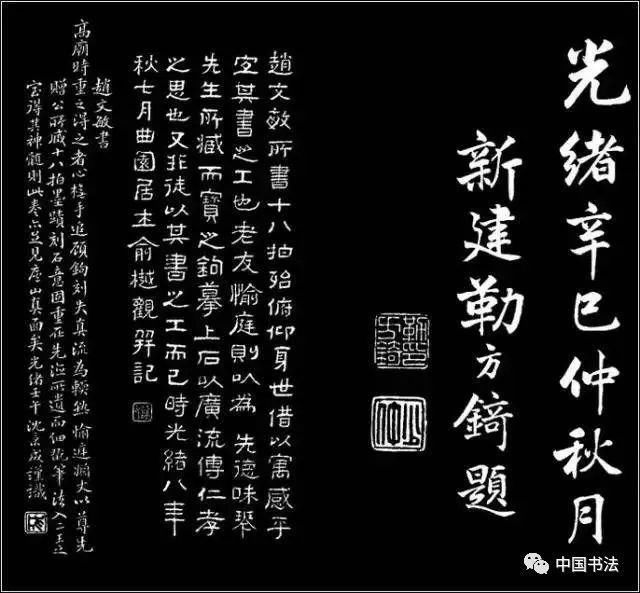 光緒辛巳仲秋月
新建勒方錡題
趙文敏所書十八拍殆俯仰身世借以寓感乎
宐其書之工也老友愉庭則以為 先德味琴
先生所藏而寶之鉤摹上石以廣流傳仁孝
之思也又非徒以其書之工而已時光緒八年
秋七月曲園居士俞樾觀并記
趙文敏書
高廟時重之得之者心橅手追顧鉤刻失真流為輭熟愉庭姻丈以尊先
贈公所藏十八拍墨蹟刻石意固重在先澤所遺而筆法入二王之
室得其神髓則此卷亦足見廬山真面矣光緒壬午沈景成謹識
中国书法